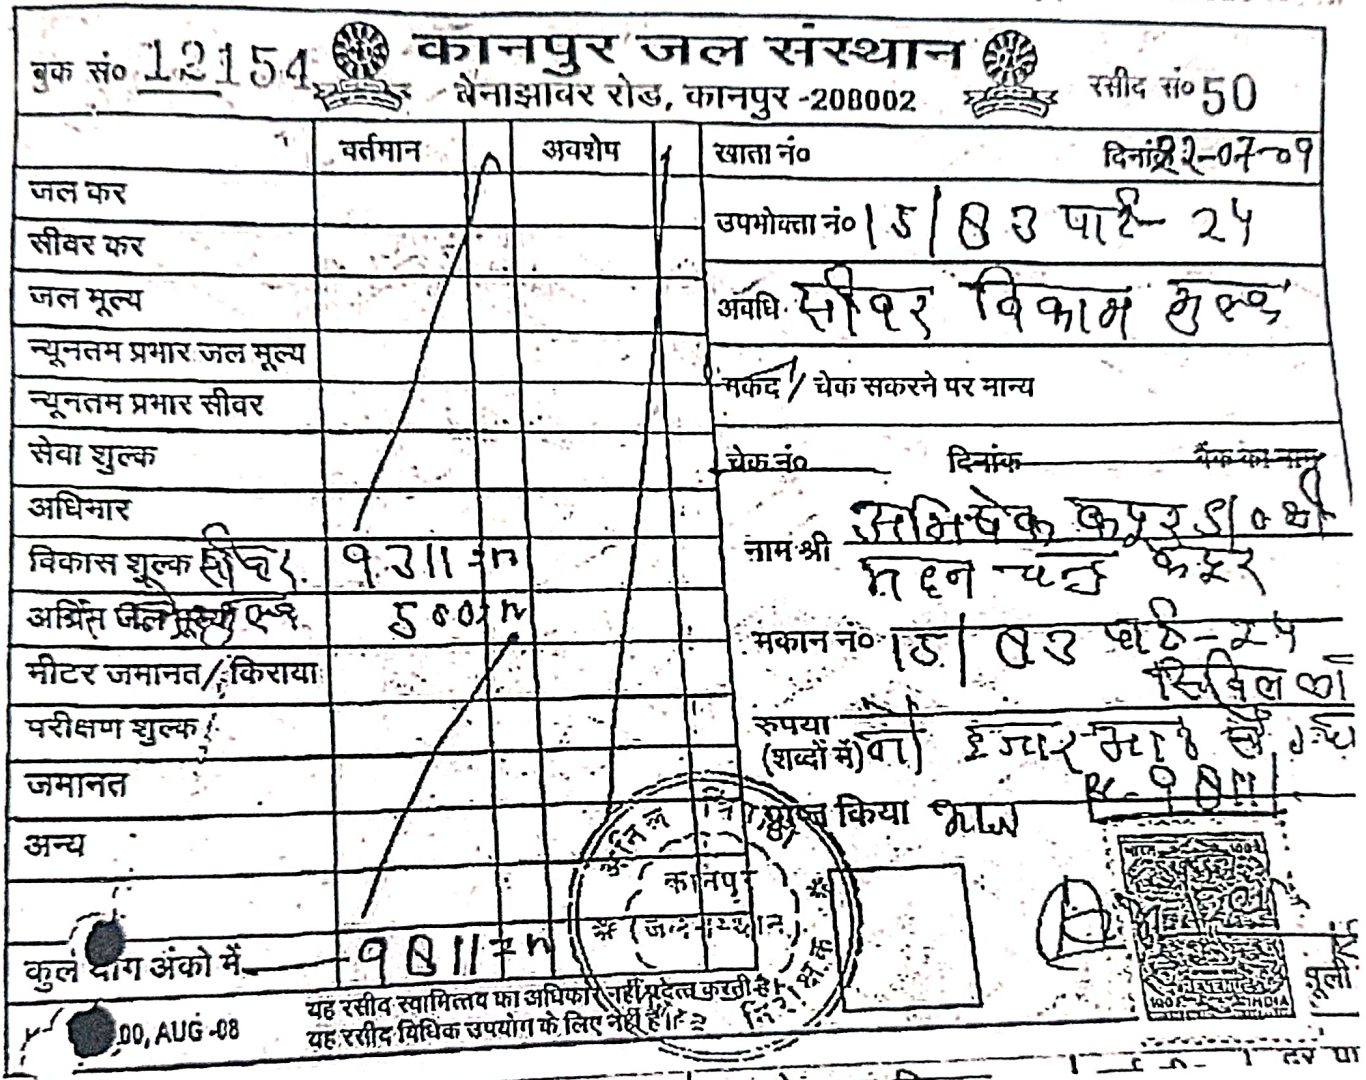 बुक सं० 12154
कानपुर जल संस्थान
बेनाझावर रोड, कानपुर -208002
रसीद सं० 50
वर्तमान अवशेष
जल कर
सीवर कर
जल मूल्य
न्यूनतम प्रभार जल मूल्य
न्यूनतम प्रभार सीवर
सेवा शुल्क
अधिभार
विकास शुल्क सीवर 9311=n
अग्रिम जल मूल्य 500=n
मीटर जमानत/किराया
परीक्षण शुल्क
जमानत
अन्य
कुल योग अंको में 9811=n
खाता नं० दिनांक 22-07-09
उपभोक्ता नं० 15/83 पार्ट-24
अवधि सीवर विकास शुल्क
नकद / चेक सकरने पर मान्य
चेक नं० दिनांक बैंक का नाम
नाम श्री अभिषेक कपूर S/o श्री
मदन चन्द्र कपूर
मकान नं० 15/83 पार्ट-24
सिविल
रुपया
(शब्दों में) नौ हजार आठ सौ
9811
प्राप्त किया
कानपुर
यह रसीद स्वामित्तव का अधिकार नहीं प्रदत्त करती है।
यह रसीद विधिक उपयोग के लिए नहीं है।
00, AUG -08
भारत
INDIA